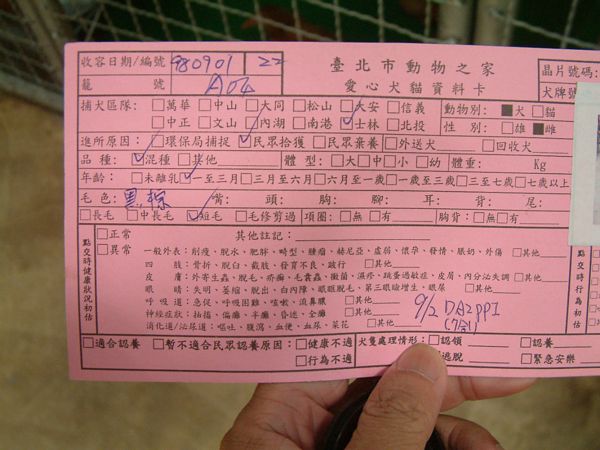 臺北市動物之家
愛心犬貓資料卡
收容日期/編號 980901 22
籠 號 A04
晶片號碼:
犬牌號
捕犬區隊: □萬華 □中山 □大同 □松山 □大安 □信義 動物別: ■犬 □貓
□中正 □文山 □內湖 □南港 ☑士林 □北投 性 別: □雄 ■雌
進所原因: □環保局捕捉 ☑民眾拾獲 □民眾棄養 □外送犬 □回收犬
品 種: ☑混種 □其他 體 型: □大 □中 □小 □幼 體重: Kg
年齡: □未離乳 ☑一至三月 □三月至六月 □六月至一歲 □一歲至三歲 □三至七歲 □七歲以上
毛色: 黑棕 嘴: 頭: 胸: 腳: 耳: 背: 尾:
□長毛 □中長毛 ☑短毛 □毛修剪過 項圈: □無 □有 胸背: □無 □有
點交時健康狀況初估
□正常 其他註記:
□異常 一般外表: 削瘦、脫水、肥胖、畸型、腫瘤、赫尼亞、虛弱、懷孕、發情、脹奶、外傷 □其他
四 肢: 骨折、脫臼、截肢、發育不良、跛行 □其他
皮 膚: 外寄生蟲、脫毛、疥癬、毛囊蟲、黴菌、濕疹、跳蚤過敏症、皮屑、內分泌失調 □其他
眼 睛: 失明、萎縮、脫出、白內障、眼瞼脫毛、第三眼瞼增生、眼屎 □其他
呼 吸 道: 急促、呼吸困難、咳嗽、流鼻膿 □其他
神經症狀: 抽搐、偏癱、半癱、昏迷、全癱 □其他
消化道/泌尿道: 嘔吐、腹瀉、血便、血尿、菜花 □其他
9/2 DA2PPI
□適合認養 □暫不適合民眾認養原因: □健康不適 犬隻處理情形: □認領 □認養
□行為不適 逃脫 □緊急安樂